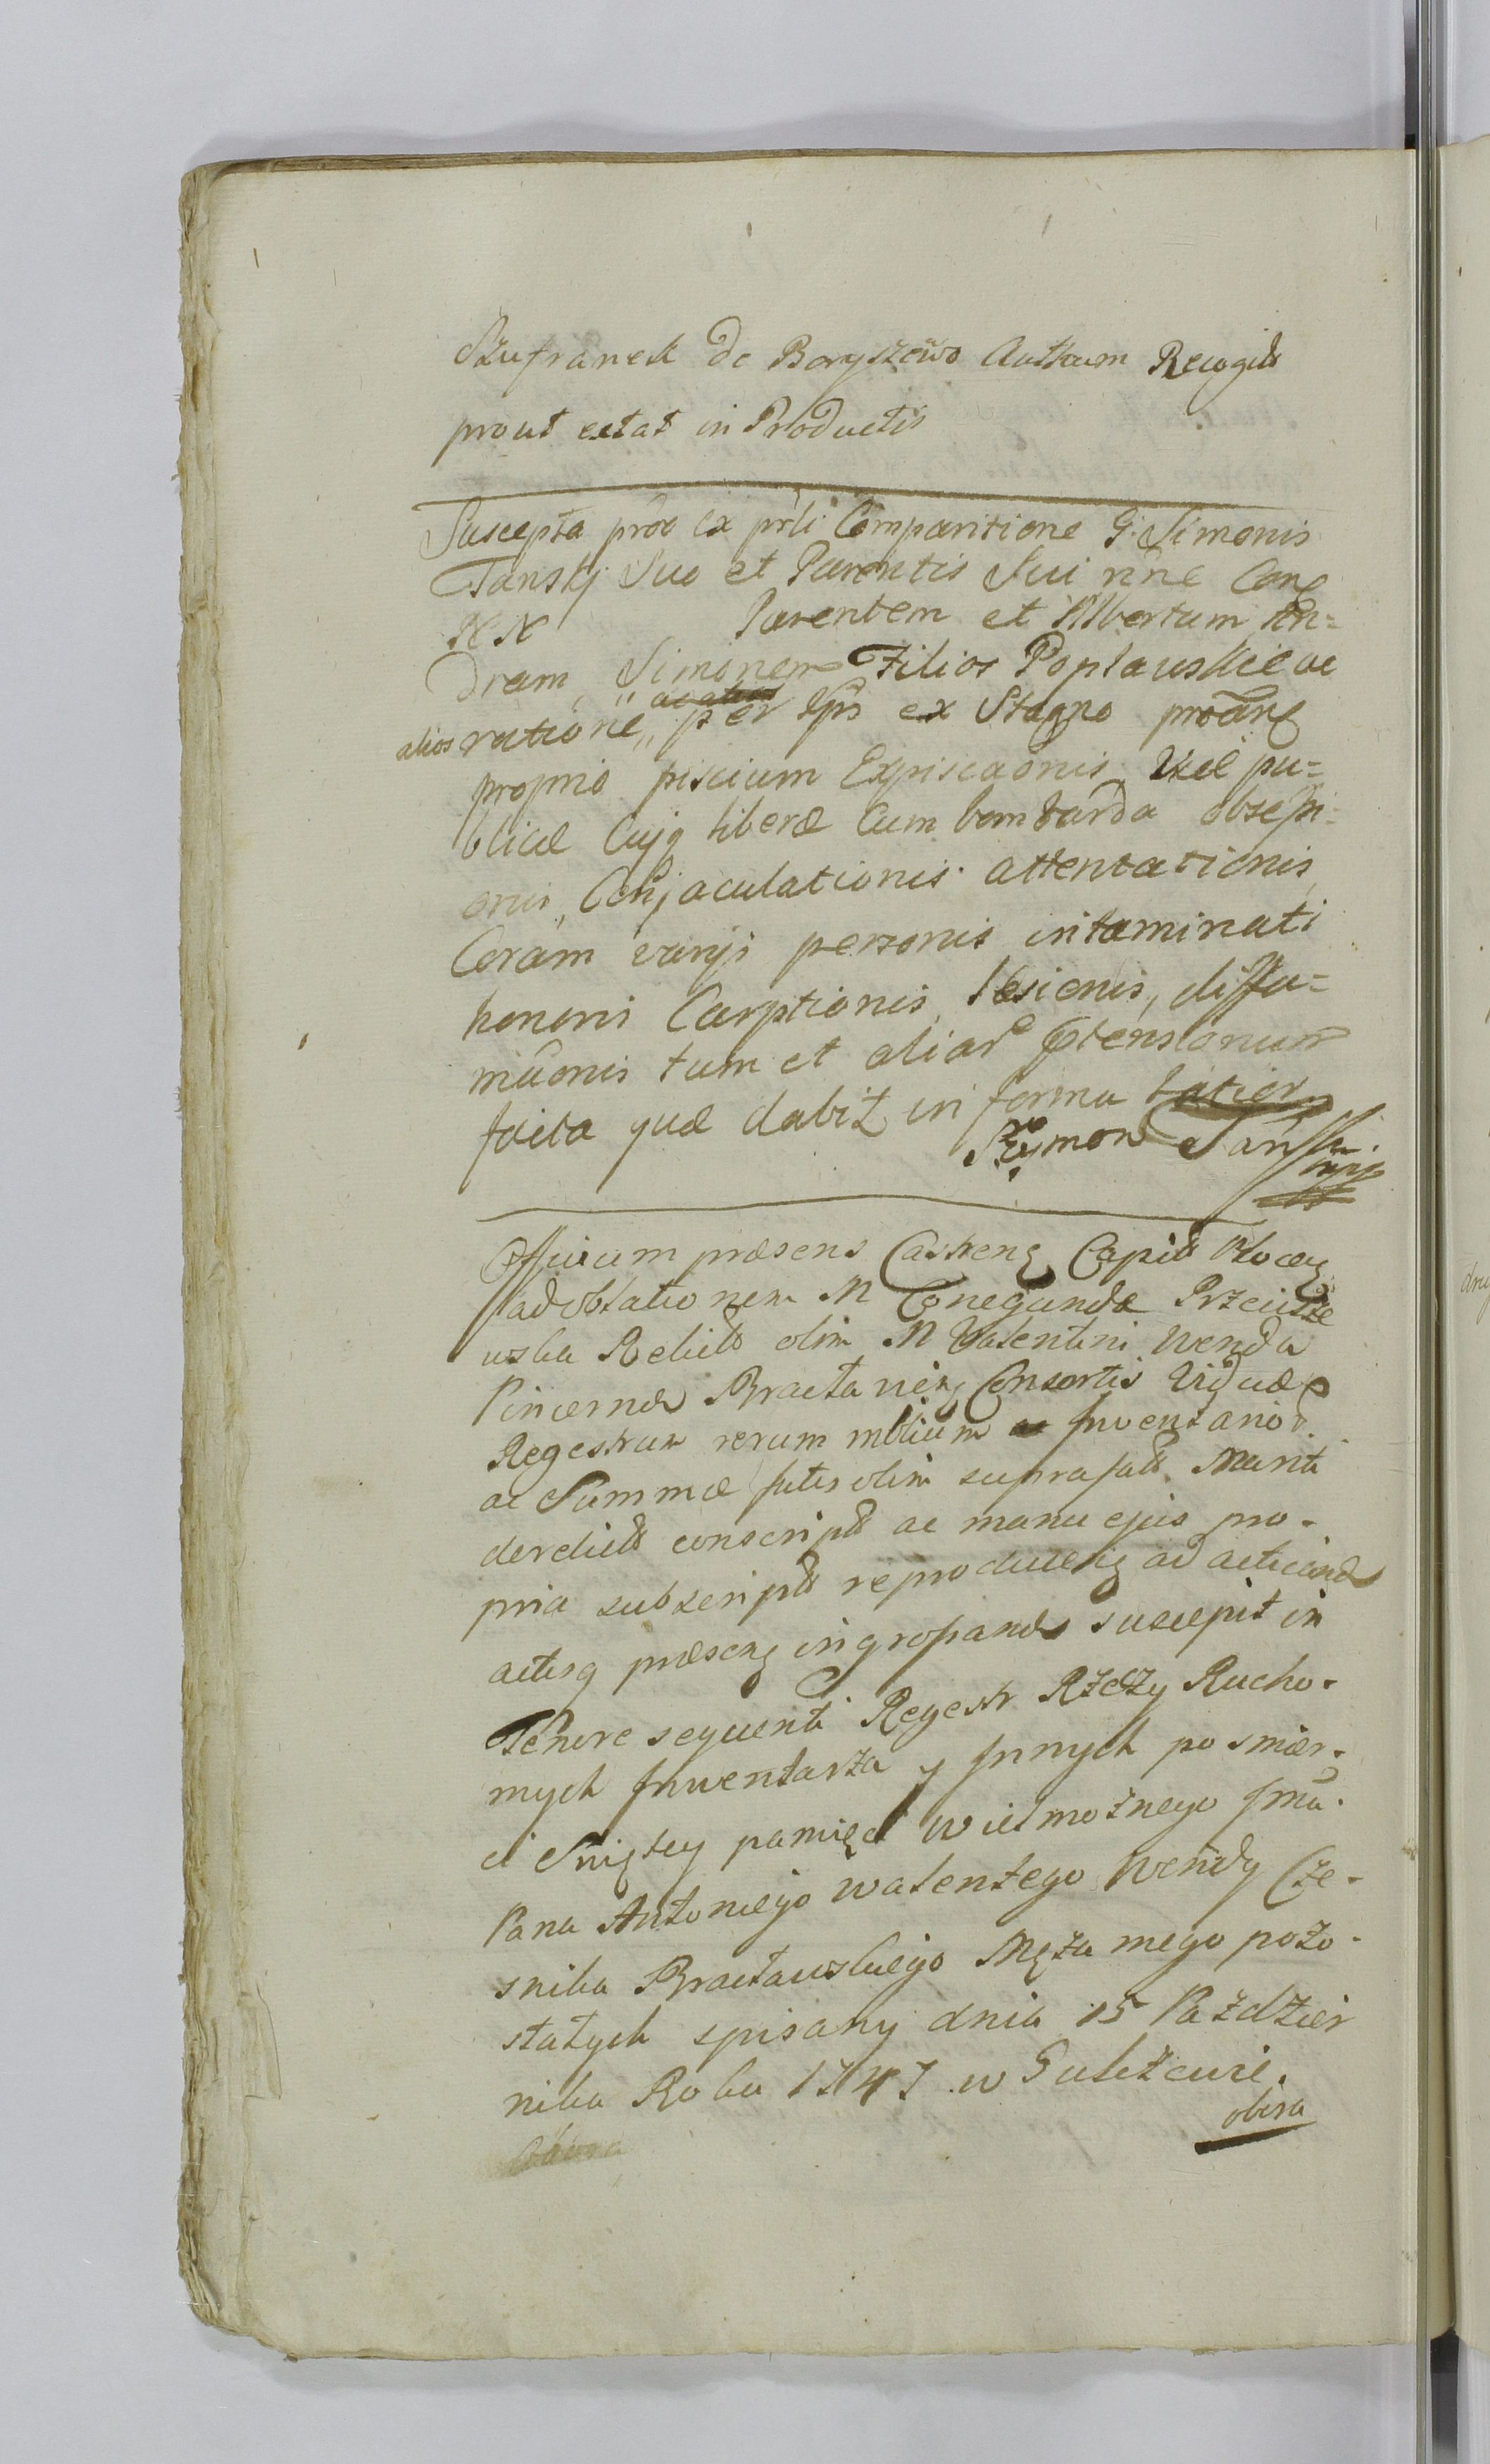 Szufranek de Boryszewo Authum Recogit
prout extat in Productis
Suscepta pror ex prsli Comparitione G. Simonis
Tansky Suo et Parentis Sui nne Conę
N N Parentem et Albertum An=
dream, Simonem Filios Popławskie ac
alios ratione per Ips ex Stagno
proprio piscium Expiscaonis, pu=
blicæ Cujq liberæ Cum bombarda obsessi
onis, Conjaculationis attentationis,
Coram varijs personis intaminati
honoris Carptionis, lesionis, diffa=
maonis tum et aliar ptensionum
facta quæ dabit in forma latiori
Szymon Tański mp
Officium præsens Castrenę Capit Plocenę
ad oblationem M Conegundæ Przecisze
wska Relict olim M Valentini Wenda
Pincernæ Bracłavienę Consortis Viduæ
Regestrum rerum mblium Inventarior.
ac Summæ futis olim suprafat Mariti
derelict conscript ac manu ejus pro-
pria subscript reproducenę ad acticand
actisq præsenę ingrossand suscepit in
Tenore sequenti Regestr Rzeczy Rucho-
mych Inwentarza y Innych po smier-
ci Swiętey pamięci Wielmożnego Imci
Pana Antoniego Walentego Wendy Cze-
snika Bracławskiego Męża mego pozo-
stałych spisany dnia 15 Paździer
nika Roku 1747 w Gulczewie.
obira